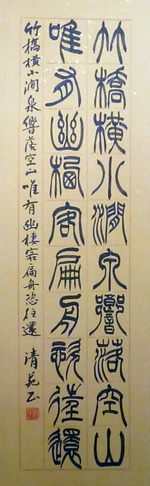 竹橋橫小澗泉響落空山
唯有幽棲客扁舟恣往還
竹橋橫小澗泉響落空山唯有幽棲客扁舟恣往還 清苑正